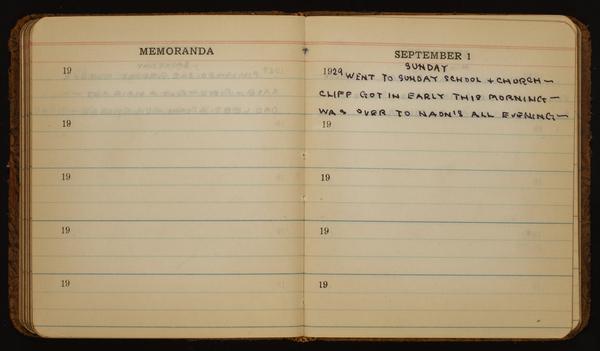 MEMORANDA
19
19
19
19
19
SEPTEMBER 1
SUNDAY
1929 WENT TO SUNDAY SCHOOL + CHURCH—
CLIFF GOT IN EARLY THIS MORNING—
WAS OVER TO NAON'S ALL EVENING—
19
19
19
19